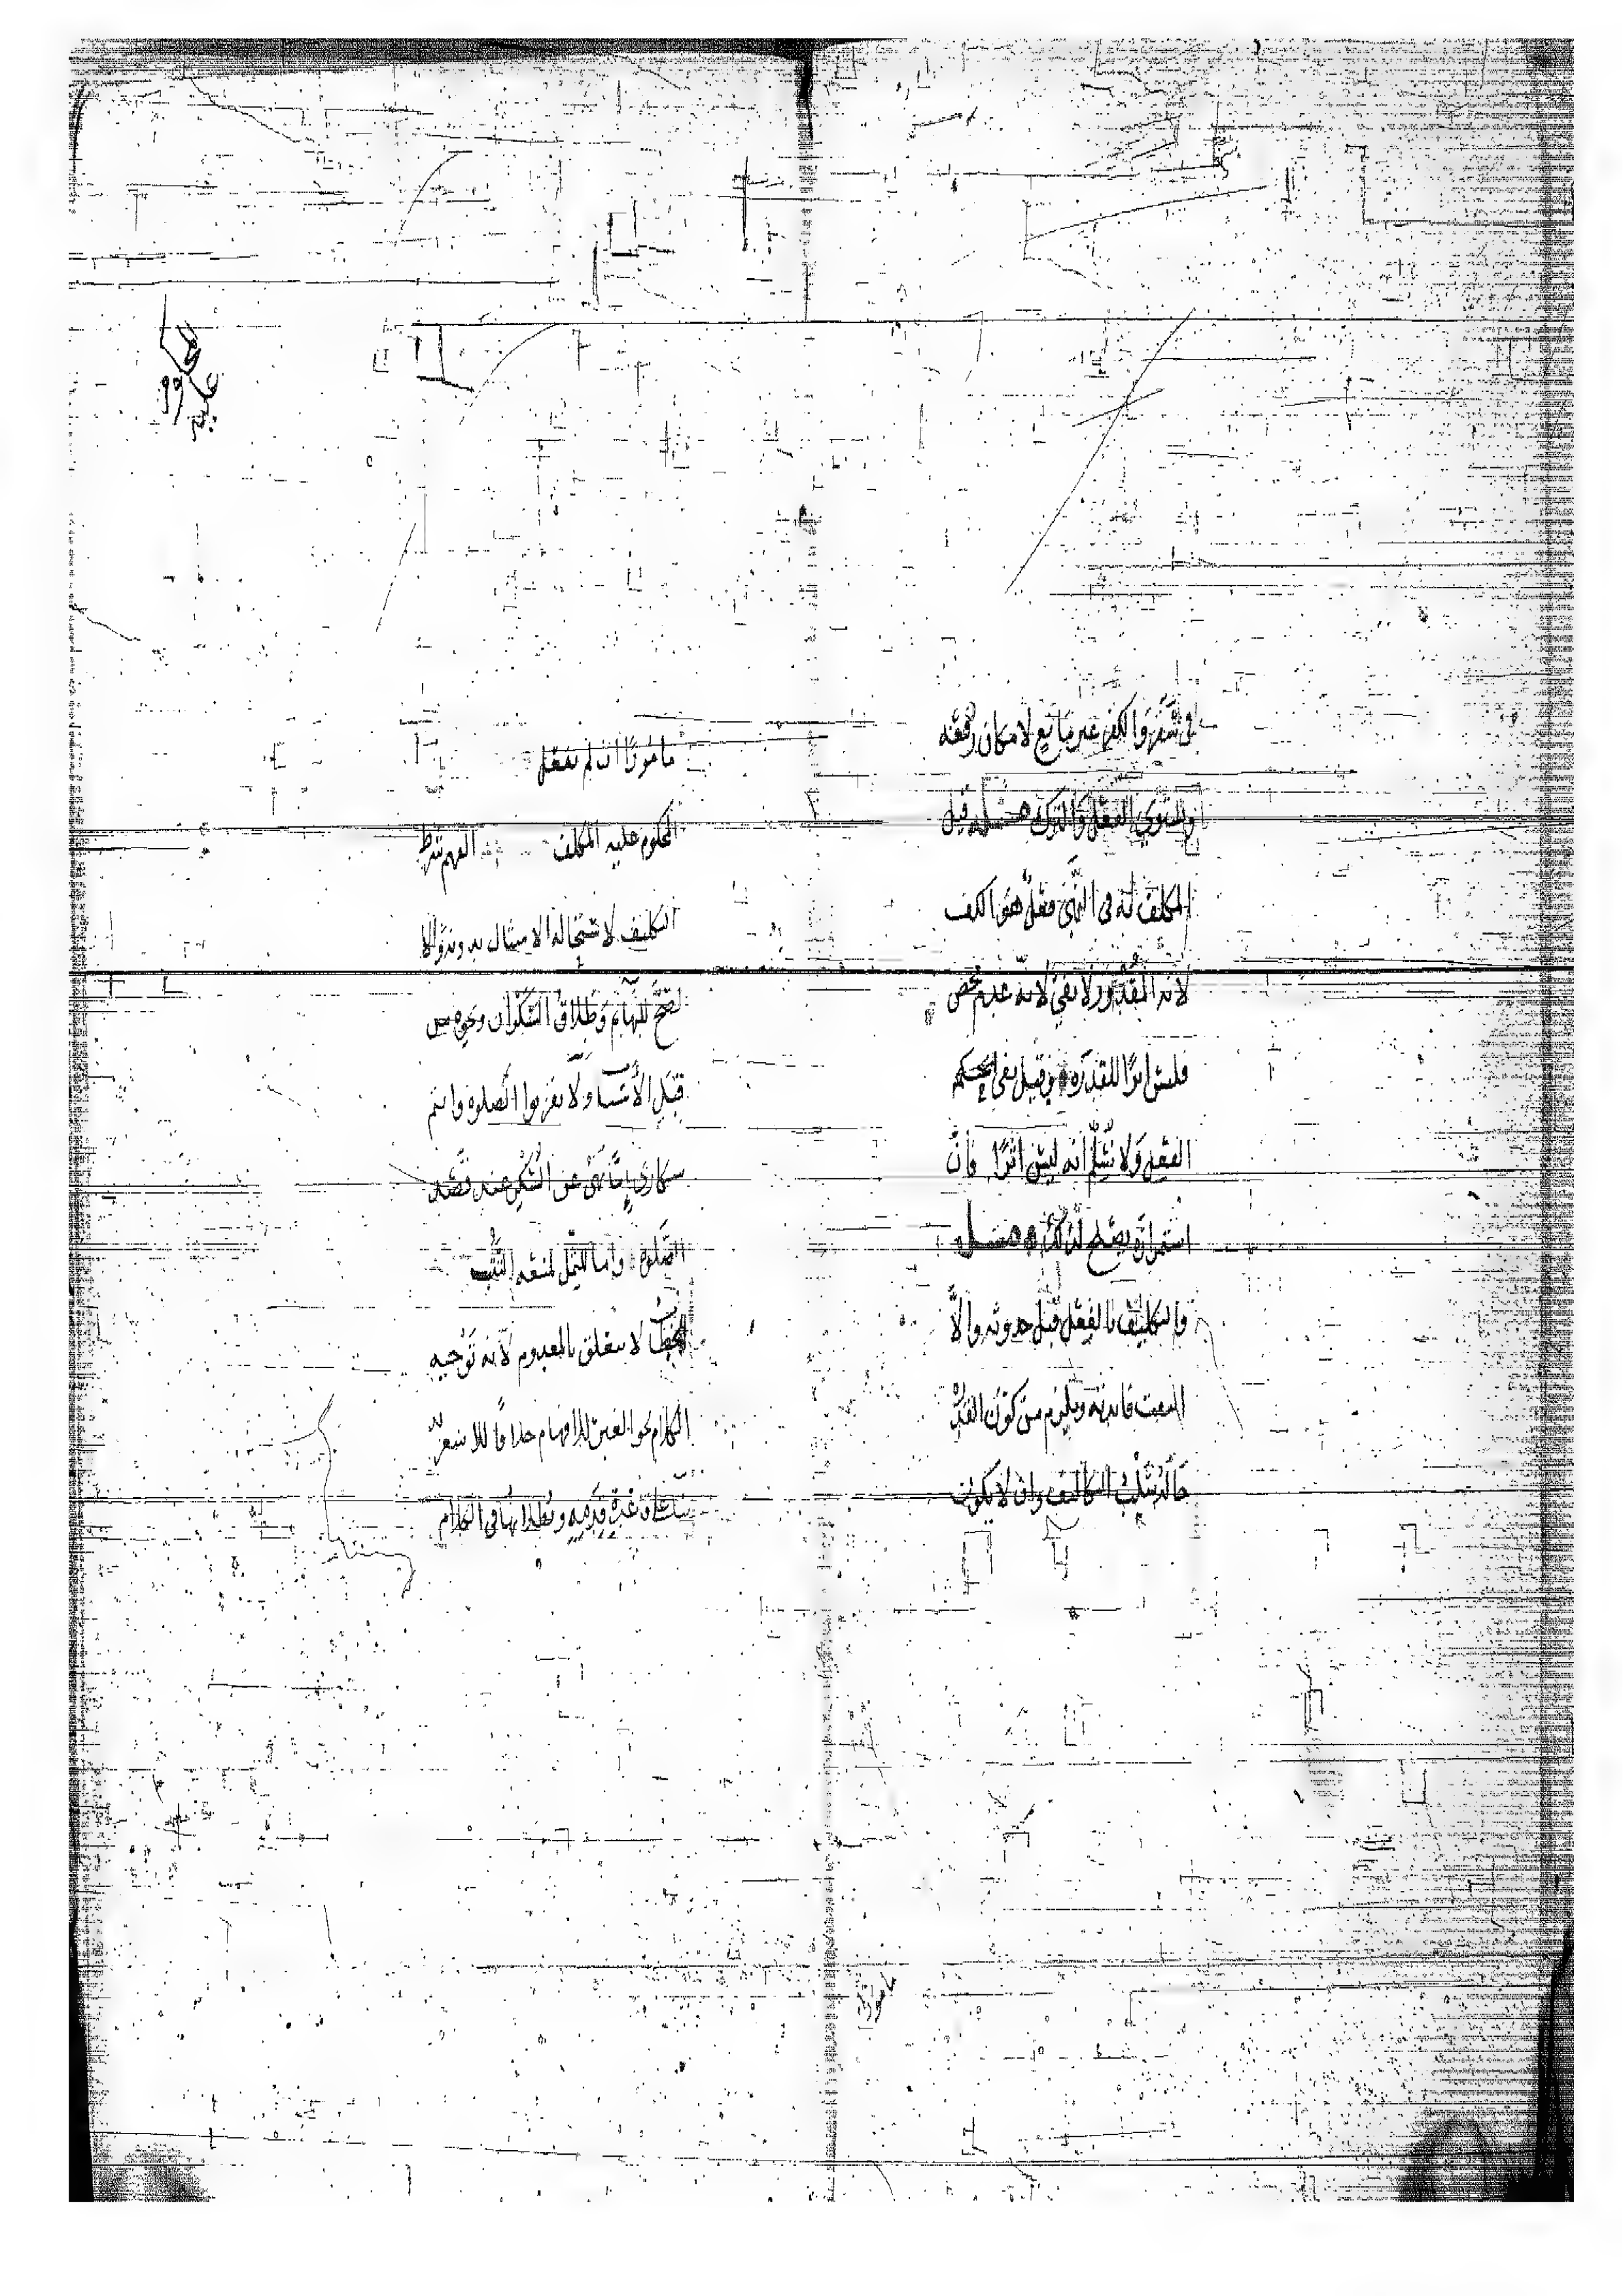 لامكان رفعه
الفعل والترك مسئله قيل
المكلف به في النهي فعل هو الكف
لانه المقدور لا نفي لانه عدم محض
فليس اثرا للقدرة وقيل نفي
الفعل ولا نسلم انه ليس اثرا فان
استمراره يصلح لذلك مسئله
والتكليف بالفعل قبل حدوثه والا
انتفت فائدته ويلزم من كون القدرة
حالة سلب التكاليف وان لا يكون
مامورا
مامورا ان لم يفعل
المحكوم عليه المكلف الفهم شرط
التكليف لاستحالة الامتثال بدونه والا
لصح للبهائم وطلاق السكران ونحوه من
قبيل الاسباب ولا تقربوا الصلوة وانتم
سكارى اما نهي عن السكر عند قصد
الصلوة واما للثمل لمنعه التثبت
الخطاب لا يتعلق بالمعدوم لانه توجيه
الكلام نحو الغير للافهام خلافا للاشعرية
في الكلام